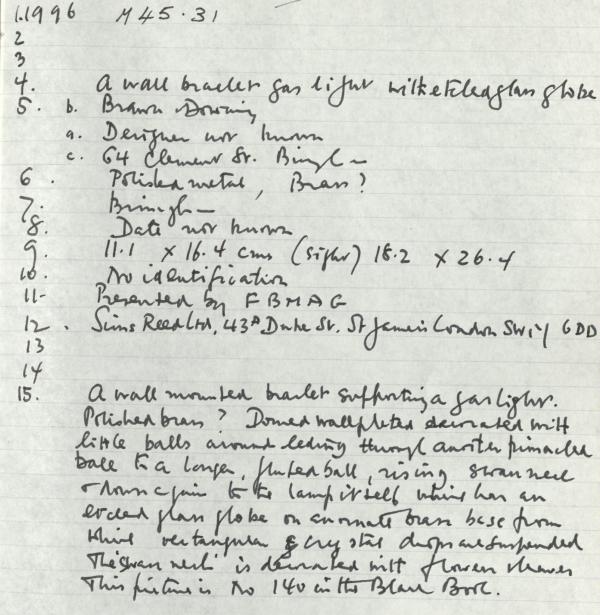 1.1996 M45.31
2
3
4. A wall bracket gas light with etched glass globe
5. b. Brawn Downing
a. Designer not known
c. 64 Clement St. Bingh
6. Polished metal, Brass?
7. Birmingh
8. Date not known
9. 11.1 x 16.4 cms (sight) 18.2 x 26.4
10. No identification
11- Presented by FBMAG
12. Sims Reed Ltd, 43A Duke St. St James's London SW1Y 6DD
13
14
15. A wall mounted bracket supporting a gas light.
Polished brass? Domed wallplated decorated with
little balls around leding through another pinnacled
ball to a larger, fluted ball, rising swan neck
& down again to the lamp itself which has an
etched glass globe on an ornate brass base from
which rectangular crystal drops are suspended
The 'swan neck' is decorated with flowers &
This picture is No 140 in the Black Book.